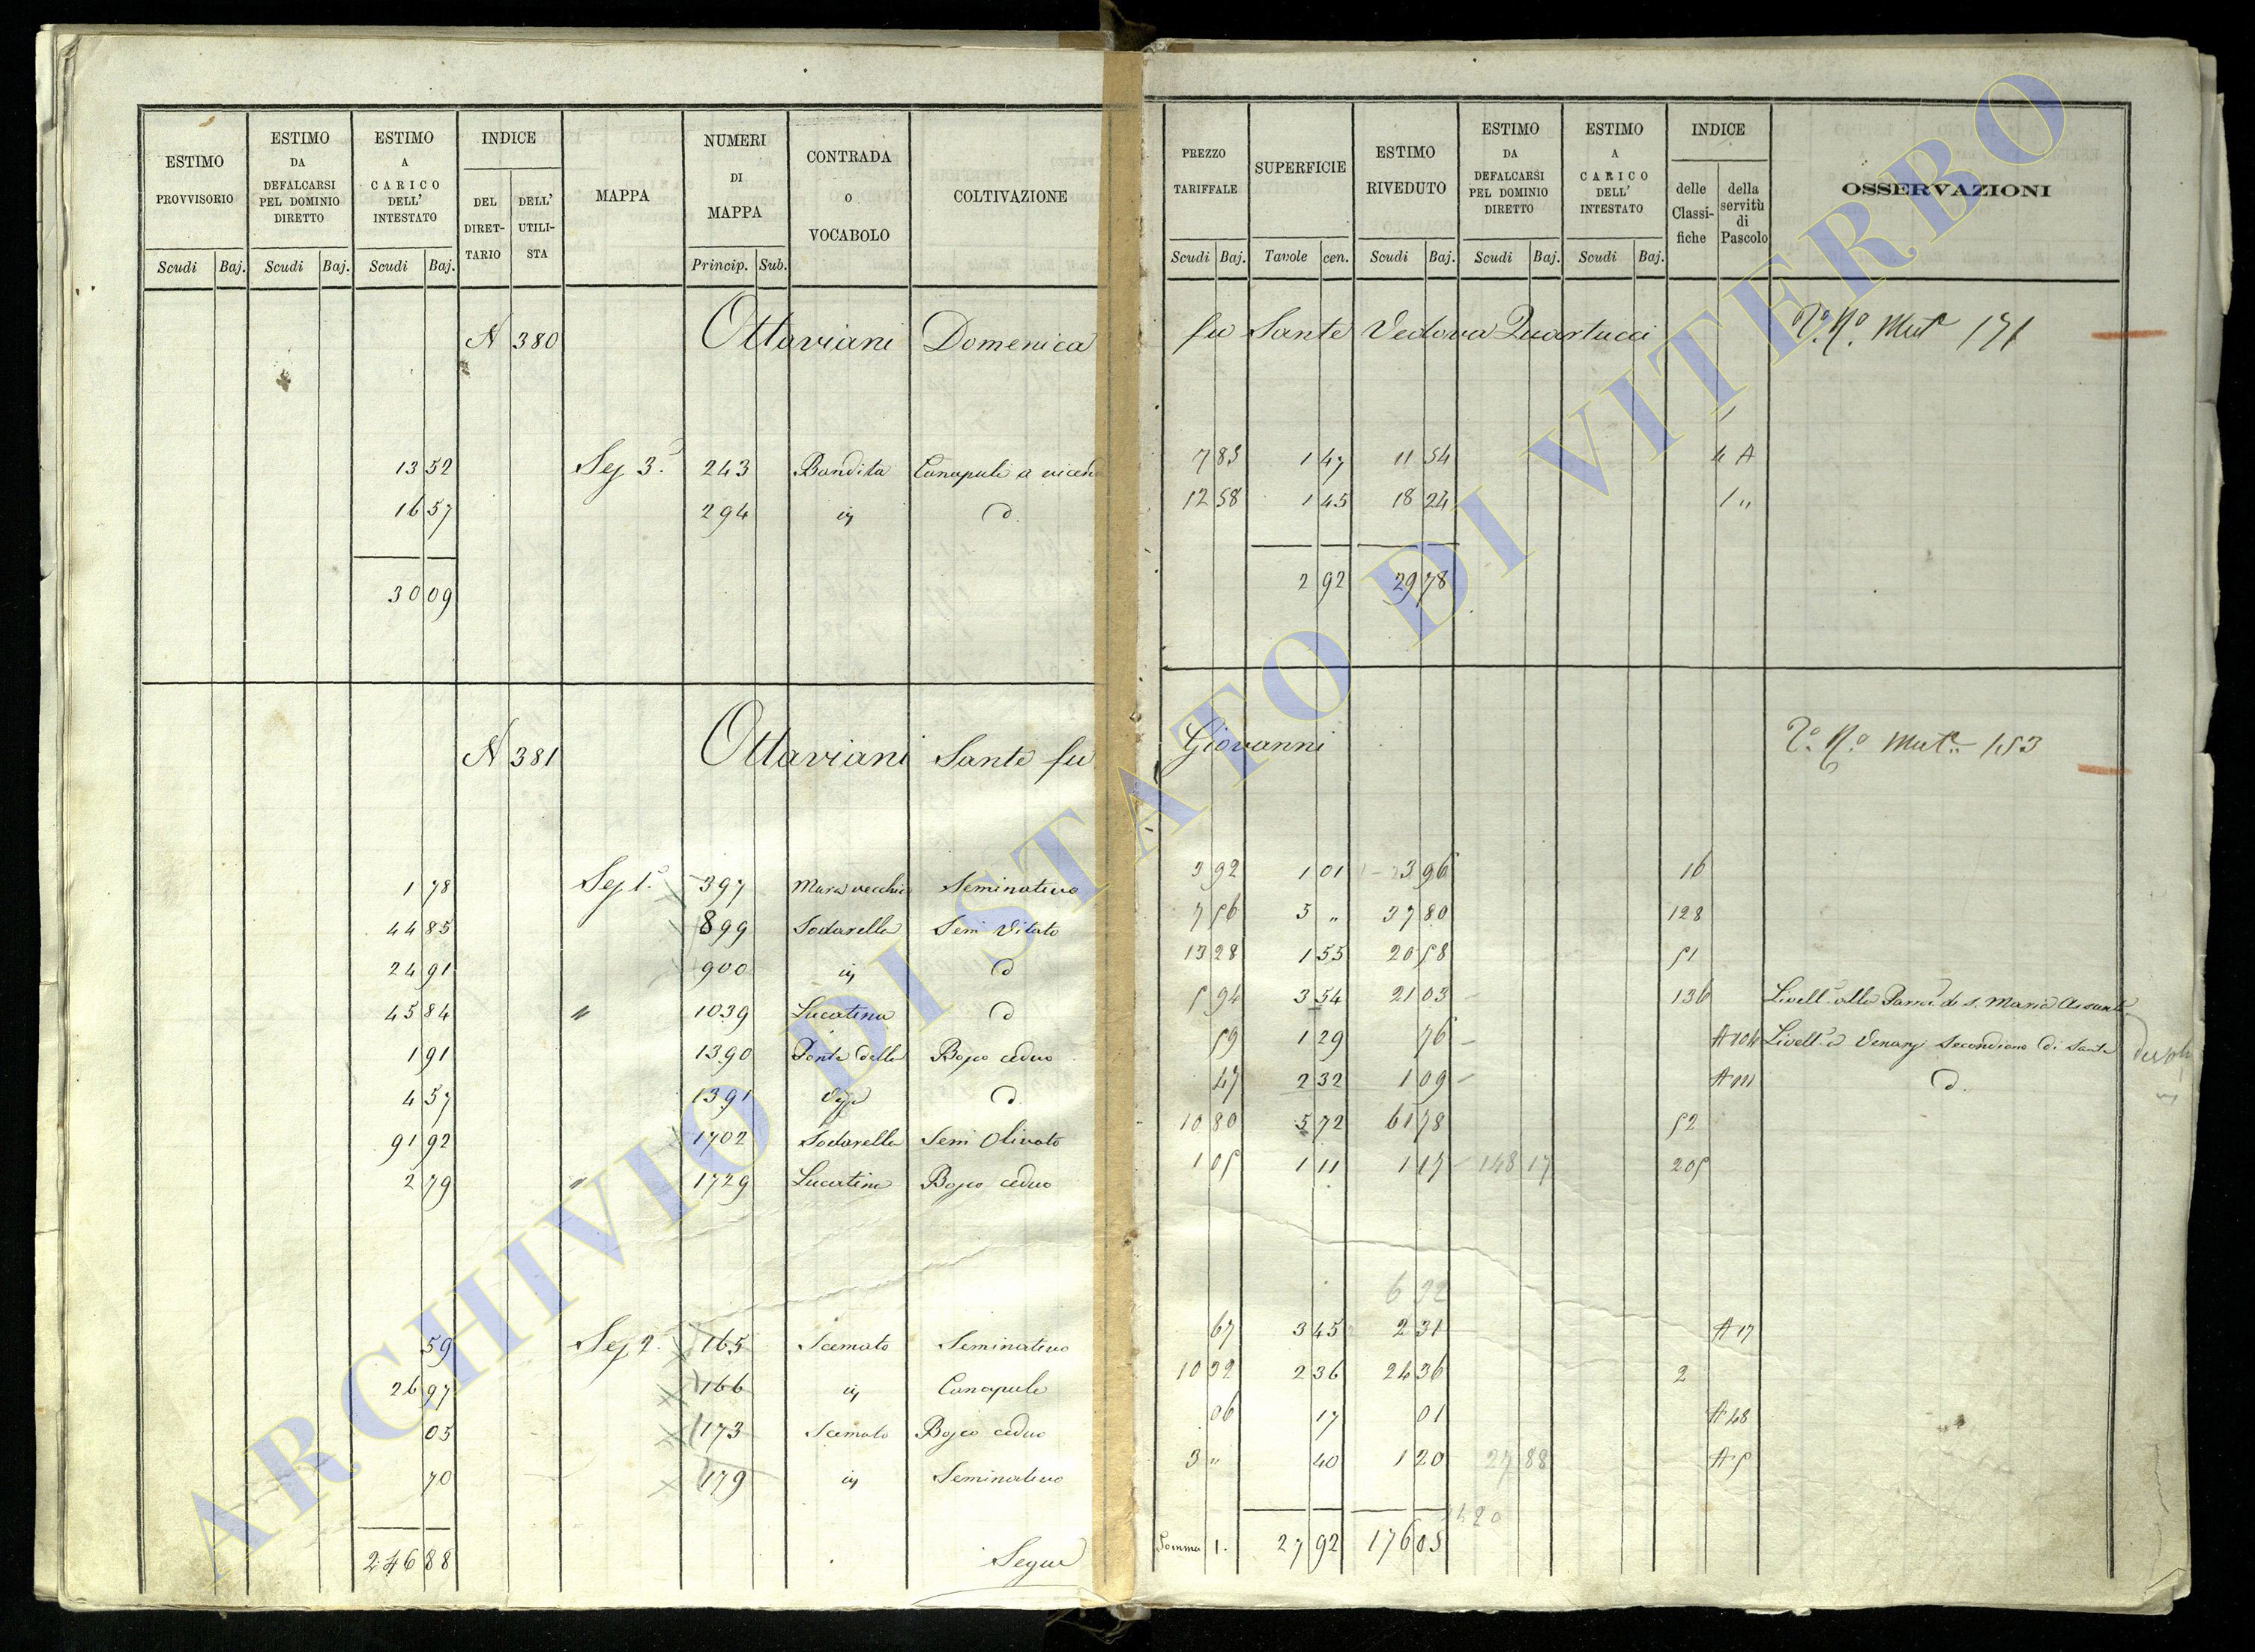 ESTIMO PROVVISORIO | ESTIMO DA DEFALCARSI PEL DOMINIO DIRETTO | ESTIMO A CARICO DELL' INTESTATO | INDICE DEL DIRET-TARIO | DELL' UTILI-STA | MAPPA | NUMERI DI MAPPA | CONTRADA o VOCABOLO | COLTIVAZIONE | PREZZO TARIFFALE | SUPERFICIE | ESTIMO RIVEDUTO | ESTIMO DA DEFALCARSI PEL DOMINIO DIRETTO | ESTIMO A CARICO DELL' INTESTATO | INDICE delle Classi-fiche | della servitù di Pascolo | OSSERVAZIONI
Scudi Baj. Scudi Baj. Scudi Baj. Princip. Sub. Scudi Baj. Tavole cen. Scudi Baj. Scudi Baj. Scudi Baj.
N 380 Ottaviani Domenica fu Sante Vedova Quartucci 171
13 52 Sez 3.a 243 Bandita Canapuli a vicenda 7 83 1 47 11 54 4 A
16 57 294 id 1 45 18 24 1 "
30 09 2 92 29 78
N 381 Ottaviani Sante fu Giovanni 153
1 78 Sez 1.a 397 Mura vecchie Seminativo 3 92 1 01 3 96 16
44 85 899 Sodarella Sem Vitato 7 56 5 " 37 80 128
24 91 900 13 28 1 55 20 58 51
45 84 " 1039 Lucatina 5 94 3 54 21 03 136 Livell. alla Parro. di S. Maria Assunta
1 91 1390 Bosco ceduo 59 1 29 76 A 104 Livell. a Secondiano di Sante
4 57 1391 47 2 32 1 09 A 111
91 92 1702 Sodarella Sem Olivato 10 80 5 72 61 78 52
2 79 " 1729 Lucatina Bosco ceduo 1 05 1 11 1 17 148 17 205
6 92
59 Sez 2.a 165 Scemato Seminativo 67 3 45 2 31 A 17
26 97 166 Canapule 10 32 2 36 24 36 2
05 173 Scemato Bosco ceduo 06 17 01 A 48
70 179 Seminativo 3 " 40 1 20 27 88 A 5
246 88 Segue Somma 1. 27 92 176 05
ARCHIVIO DI STATO DI VITERBO